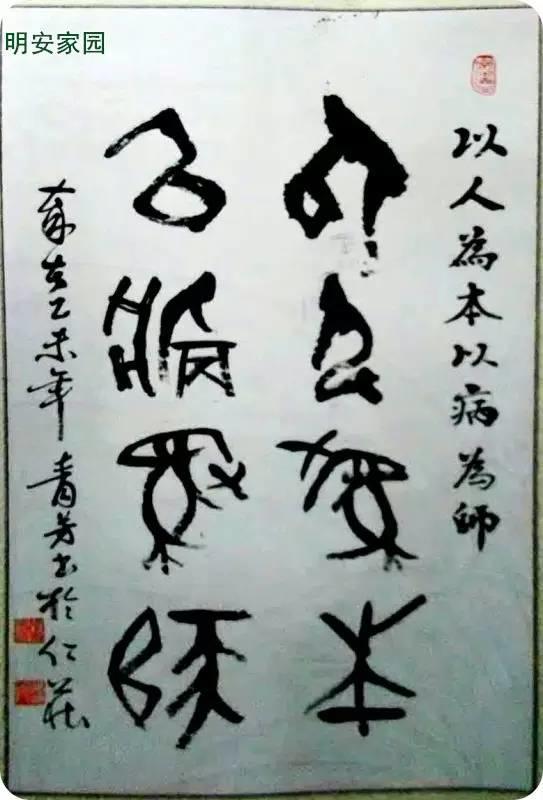 明安家园
以人為本以病為師
以人為本
以病為師
歲在乙未年 青芳书於仁莊